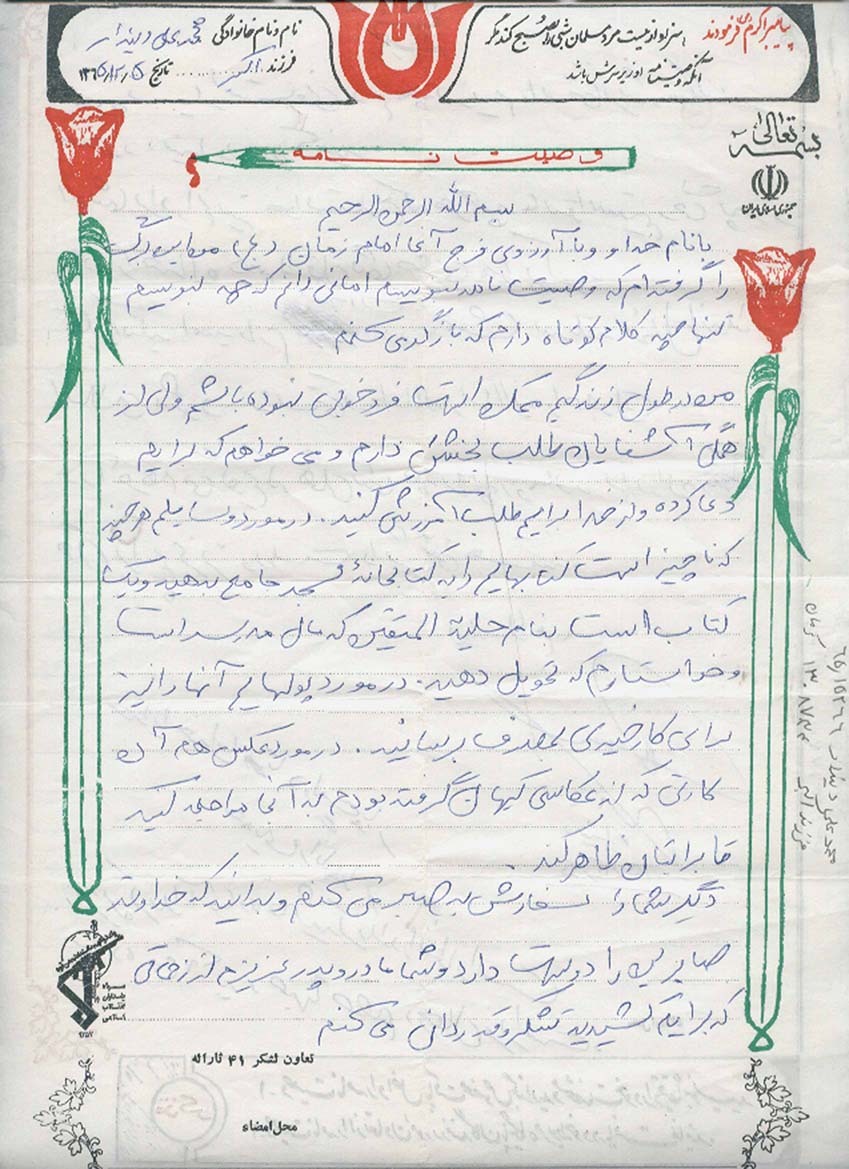 پیامبر اکرم (ص) فرمودند
سزاوار نیست مرد مسلمان شبی را صبح کند مگر
آنکه وصیتنامه او زیر سرش باشد
نام و نام خانوادگی محمدعلی دیندار
فرزند اکبر تاریخ ۱۳۶۵/۱۲/۵
بسمه تعالی
جمهوری اسلامی ایران
وصیت نامه
بسم الله الرحمن الرحیم
با نام خدا و با آرزوی فرج آقا امام زمان (عج) من این برگ
را گرفته‌ام که وصیت نامه بنویسم اما نمی دانم که چه بنویسم
تنها چند کلام کوتاه دارم که بازگو می کنم
من در طول زندگیم ممکن است فرد خوبی نبوده باشم ولی از
همگی آشنایان طلب بخشش دارم و می خواهم که برایم
دعا کرده و از خدا برایم طلب آمرزش کنید. در مورد وسایلم هرچند
که ناچیز است کتابهایم را به کتابخانهٔ مسجد جامع بدهید و یک
کتاب است بنام حلیة المتقین که مال مدرسه است
و خواستارم که تحویل دهید. در مورد پولهایم آنها را نیز
برای کار خیری بمصرف برسانید. در مورد عکس هم آن
کارتی که از عکاسی کیهان گرفته بودم به آنجا مراجعه کنید
تا برایتان ظاهر کند.
دیگر شما را سفارش به صبر می کنم و بدانید که خداوند
صابرین را دوست دارد و شما مادر و پدر عزیزم از زحماتی
که برایم کشیدید تشکر و قدردانی می کنم
سپاه پاسداران انقلاب اسلامی
تعاون لشکر ۴۱ ثارالله
محل امضاء
محمد علی دیندار
فرزند اکبر
کرمان